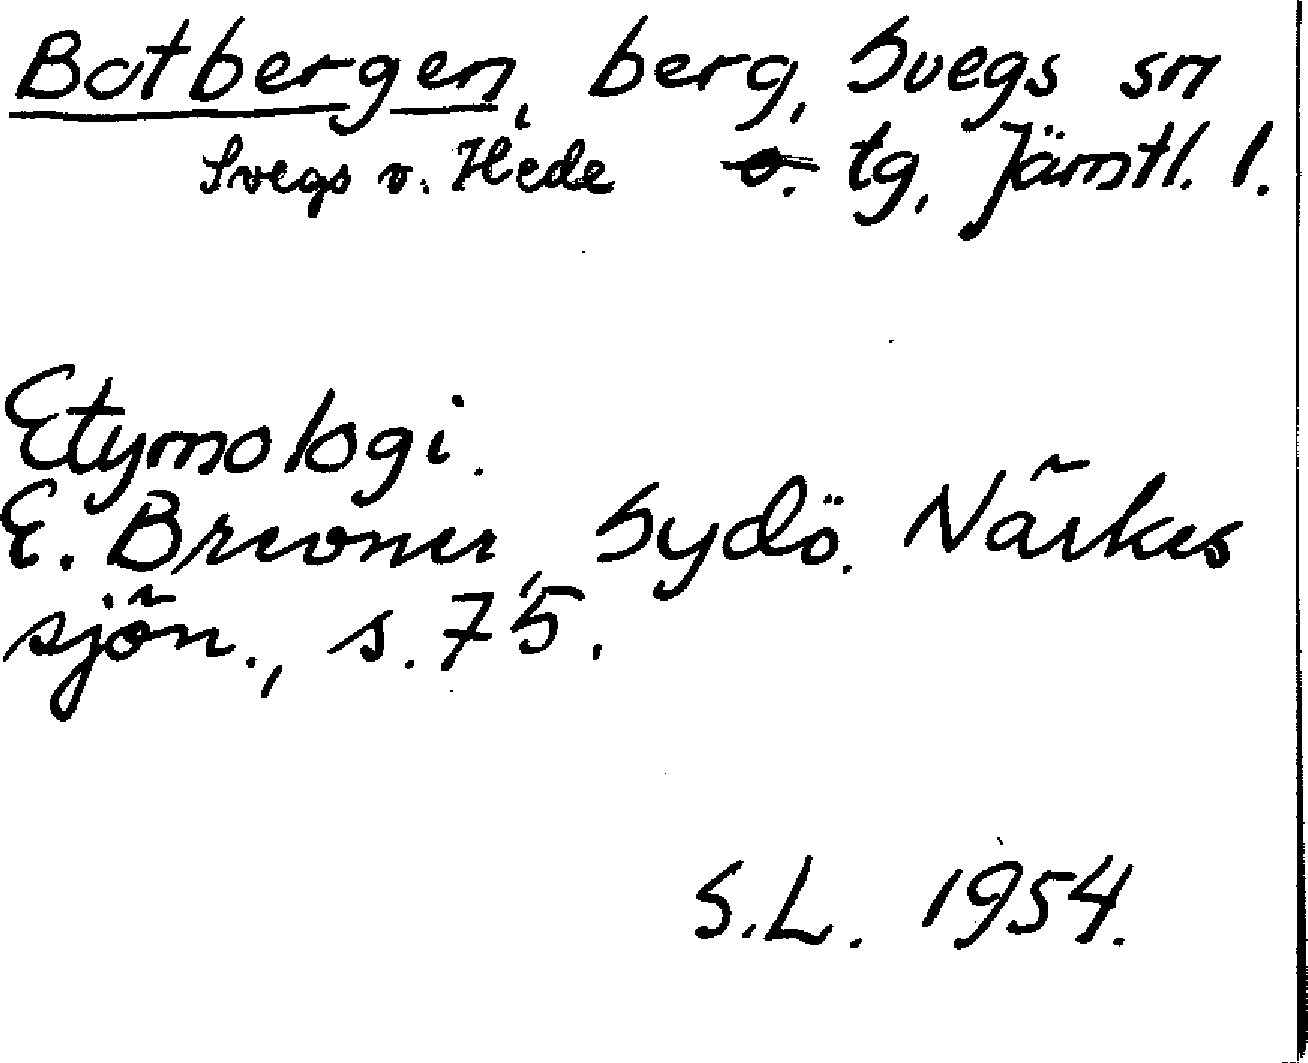 Botbergen, berg, Svegs sn
Svegs o. Hede o. tg, Jämtl. l.
Etymologi.
E. Brevner, Sydö. Närkes
sjön., s. 75.
S.L. 1954.